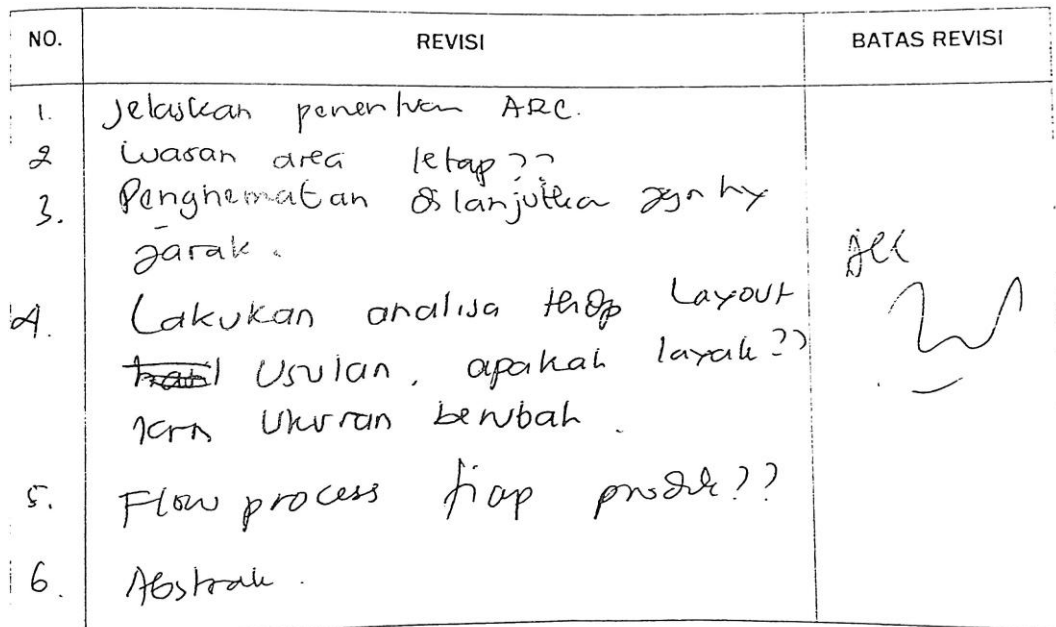 NO. REVISI BATAS REVISI
1. Jelaskan penentuan ARC.
2 area tetap ??
3. Penghematan dilanjutkan dgn
jarak.
4. Lakukan analisa thdp Layout
usulan, apakah layak ??
krn Ukuran berubah.
5. Flow process tiap produk ??
6. Abstrak.